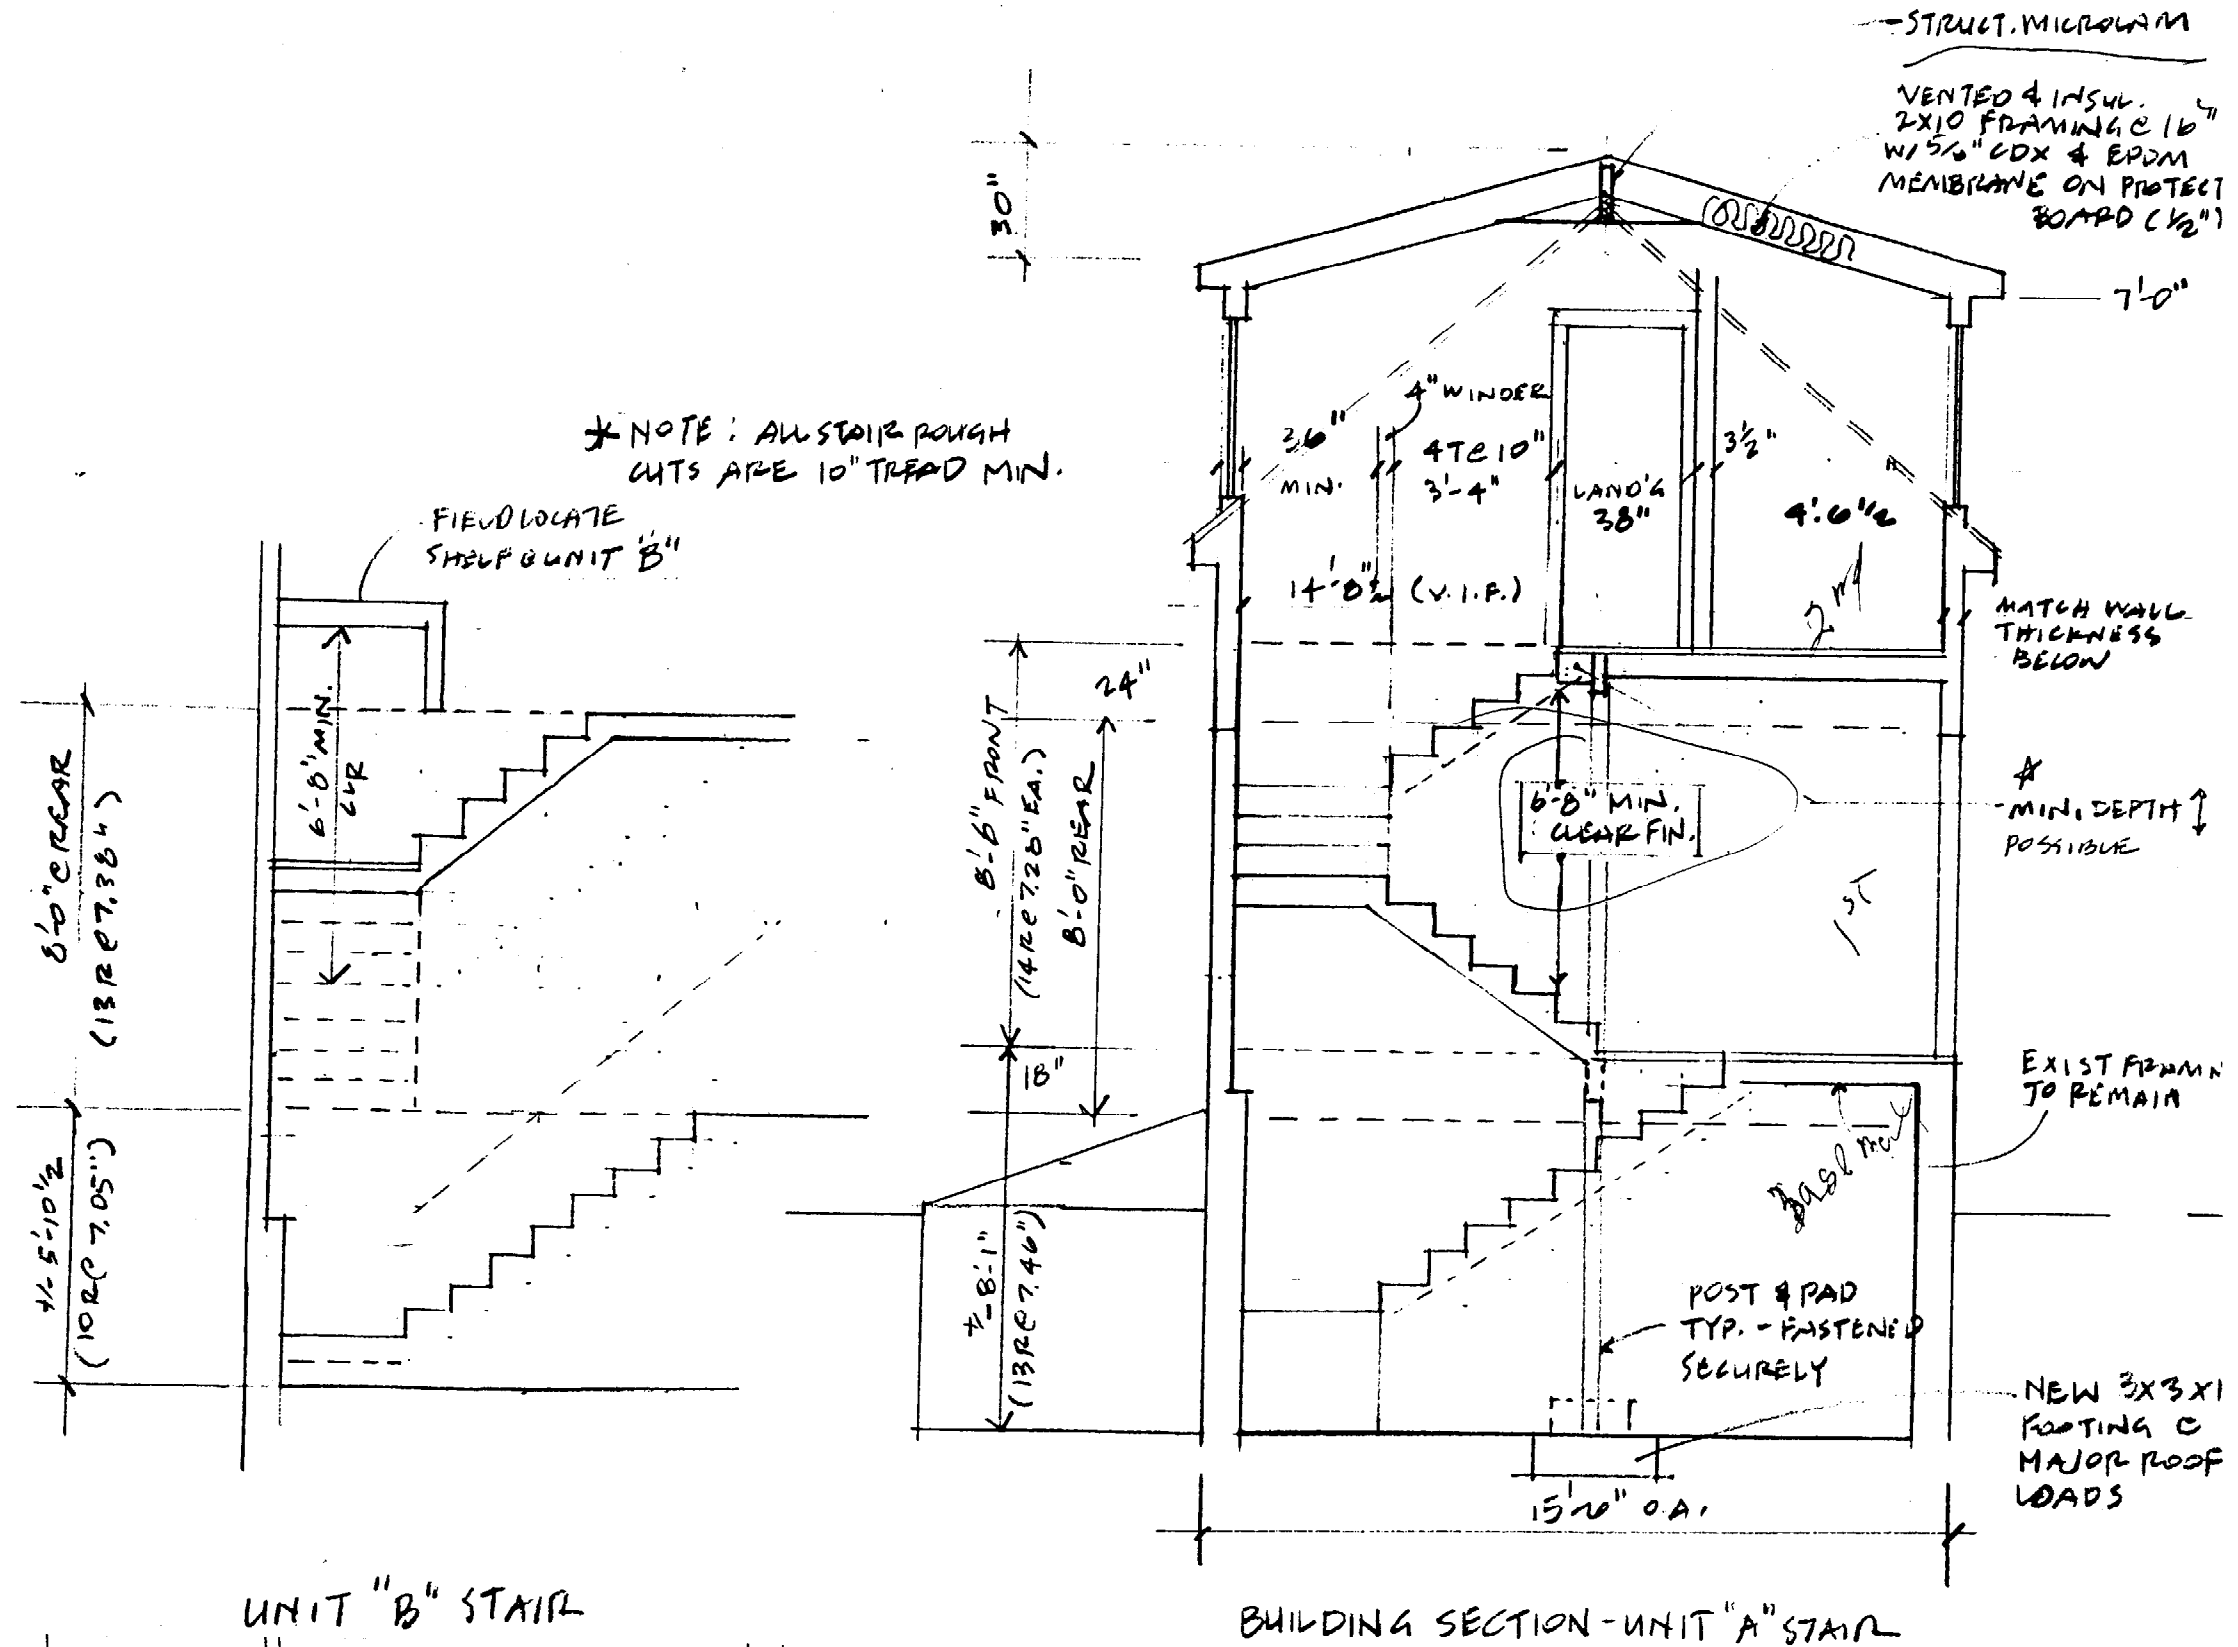 STRUCT. MICROLAM
VENTED & INSUL.
2X10 FRAMING @ 16"
W/ 5/8" CDX & EPDM
MEMBRANE ON PROTECT
BOARD (1/2")
30"
7'-0"
* NOTE: ALL STAIR ROUGH
CUTS ARE 10" TREAD MIN.
FIELD LOCATE
SHELF @ UNIT "B"
4" WINDER
36"
MIN.
4T@10"
3'-4"
LAND'G
38"
3½"
4'-6 1/2
14'-8½ (V.I.F.)
2nd
MATCH WALL
THICKNESS
BELOW
6'-8" MIN.
CLR
8'-0" @ REAR
(13R@7.38")
24"
8'-6" FRONT
(14R@7.28" EA.)
8'-0" REAR
6'-8" MIN.
CLEAR FIN.
*
MIN. DEPTH
POSSIBLE
1ST
18"
EXIST FRAMIN
TO REMAIN
+/- 5'-10½
(10R@7.05")
+/- 8'-1"
(13R@7.46")
POST & PAD
TYP. - FASTENED
SECURELY
NEW 3X3X1
FOOTING @
MAJOR ROOF
LOADS
15'-6" O.A.
UNIT "B" STAIR
BUILDING SECTION - UNIT "A" STAIR